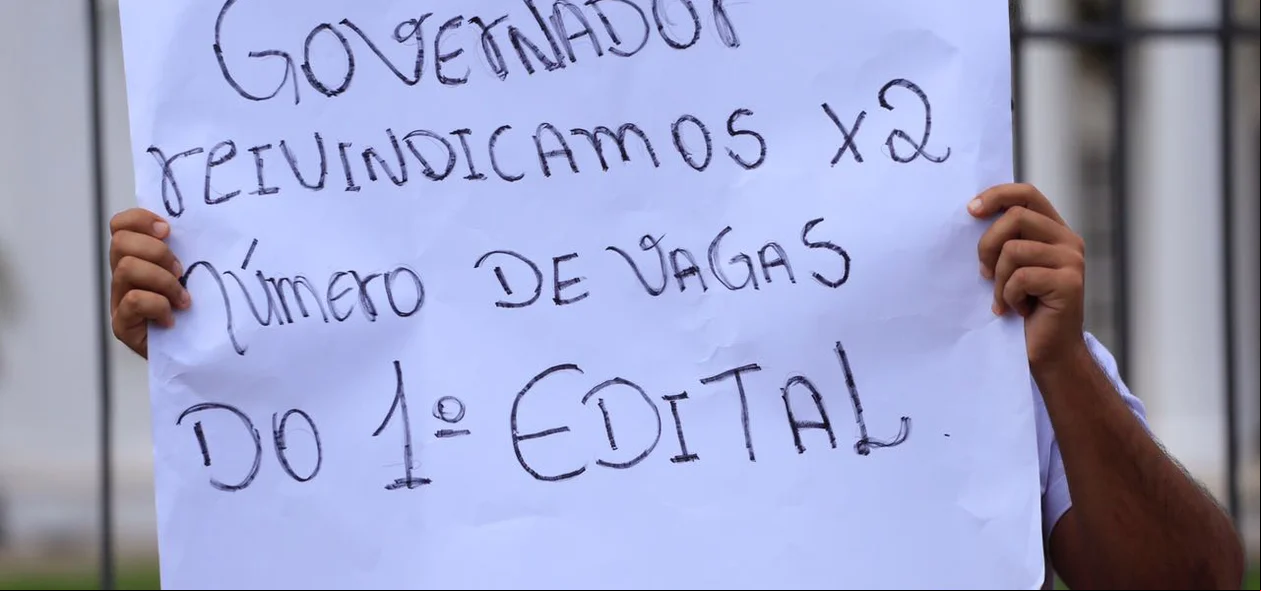 GOVERNADOR
REIVINDICAMOS X2
NÚMERO DE VAGAS
DO 1º EDITAL.